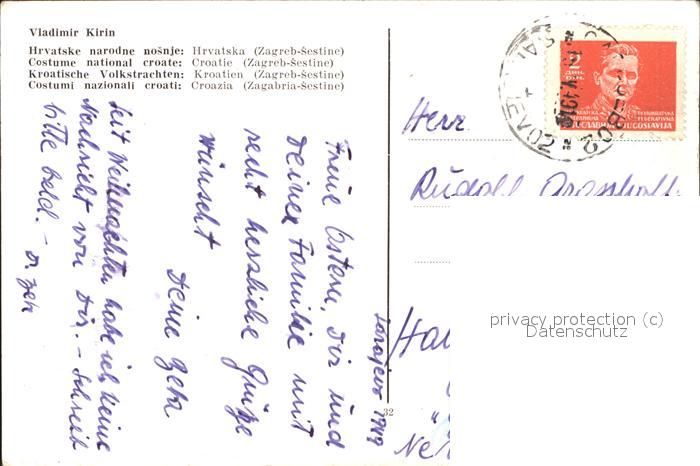 Vladimir Kirin
Hrvatske narodne nošnje: Hrvatska (Zagreb-Šestine)
Costume national croate: Croatie (Zagreb-Šestine)
Kroatische Volkstrachten: Kroatien (Zagreb-Šestine)
Costumi nazionali croati: Croazia (Zagabria-Šestine)
Sarajevo 1949
Frohe Ostern, Dir und
Deiner Familie mit
recht herzliche Grüße
wünscht
Deine
Seit Weihnachten habe ich keine
Nachricht von Dir. - Schreib
bitte bald. -
32
Herr
Rudolf
privacy protection (c)
Datenschutz
2
JUGOSLAVIJA